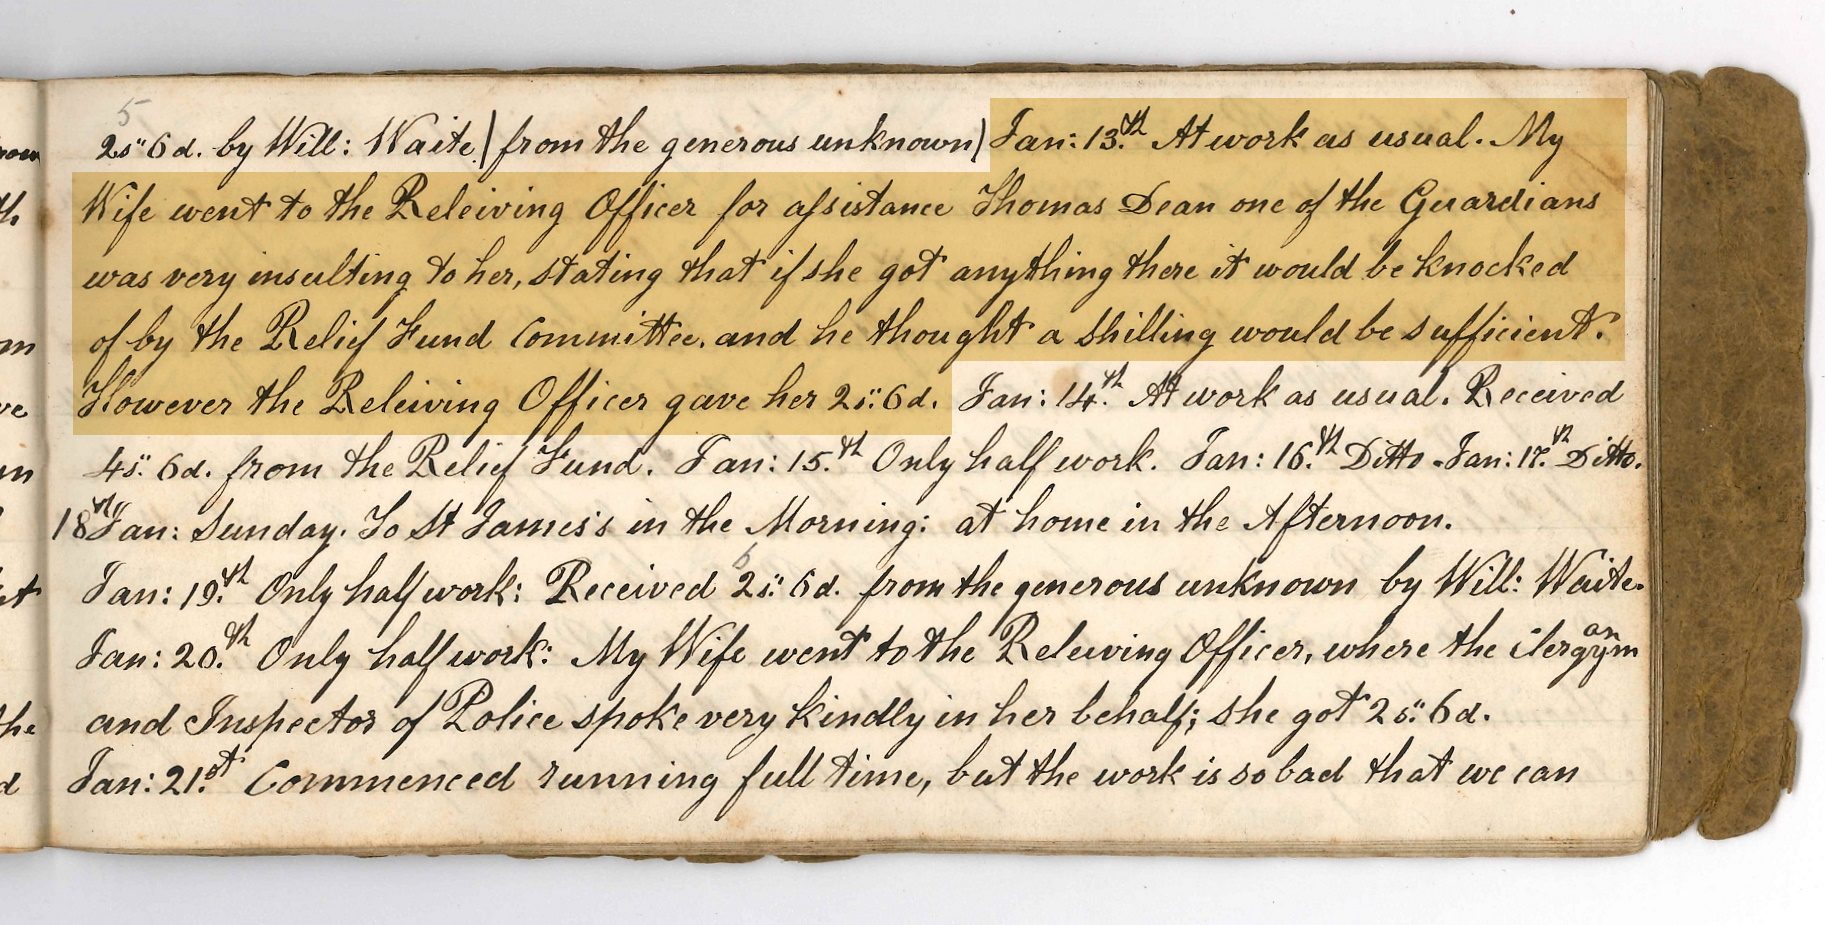 5
2s" 6d. by Will: Waite.) from the generous unknown) Jan: 13.th At work as usual. My
Wife went to the Releiving Officer for assistance Thomas Dean one of the Guardians
was very insulting to her, stating that if she got anything there it would be knocked
of by the Relief Fund Committee. and he thought a shilling would be sufficient.
However the Releiving Officer gave her 2s": 6d. Jan: 14.th At work as usual. Received
4s": 6d. from the Relief Fund. Jan: 15.th Only half work. Jan: 16.th Ditto. Jan: 17.th Ditto.
18th Jan: Sunday. To St James's in the Morning: at home in the Afternoon.
6
Jan: 19.th Only half work: Received 2s": 6d. from the generous unknown by Will: Waite.
Jan: 20.th Only half work: My Wife went to the Releiving Officer, where the Clergyman
and Inspector of Police spoke very kindly in her behalf; she got 2s": 6d.
Jan: 21.st Commenced running full time, but the work is so bad that we can